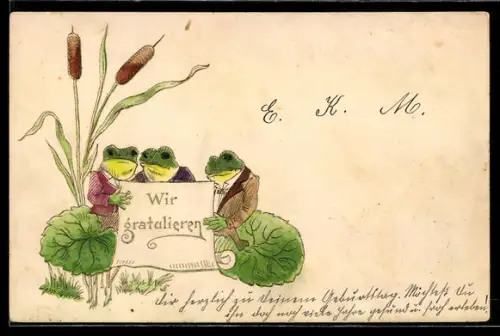 E. K. M.
Wir
gratulieren
Dir herzlich zu Deinem Geburtstag. Möchtest Du
ihn doch noch viele Jahre gesund u. froh erleben!